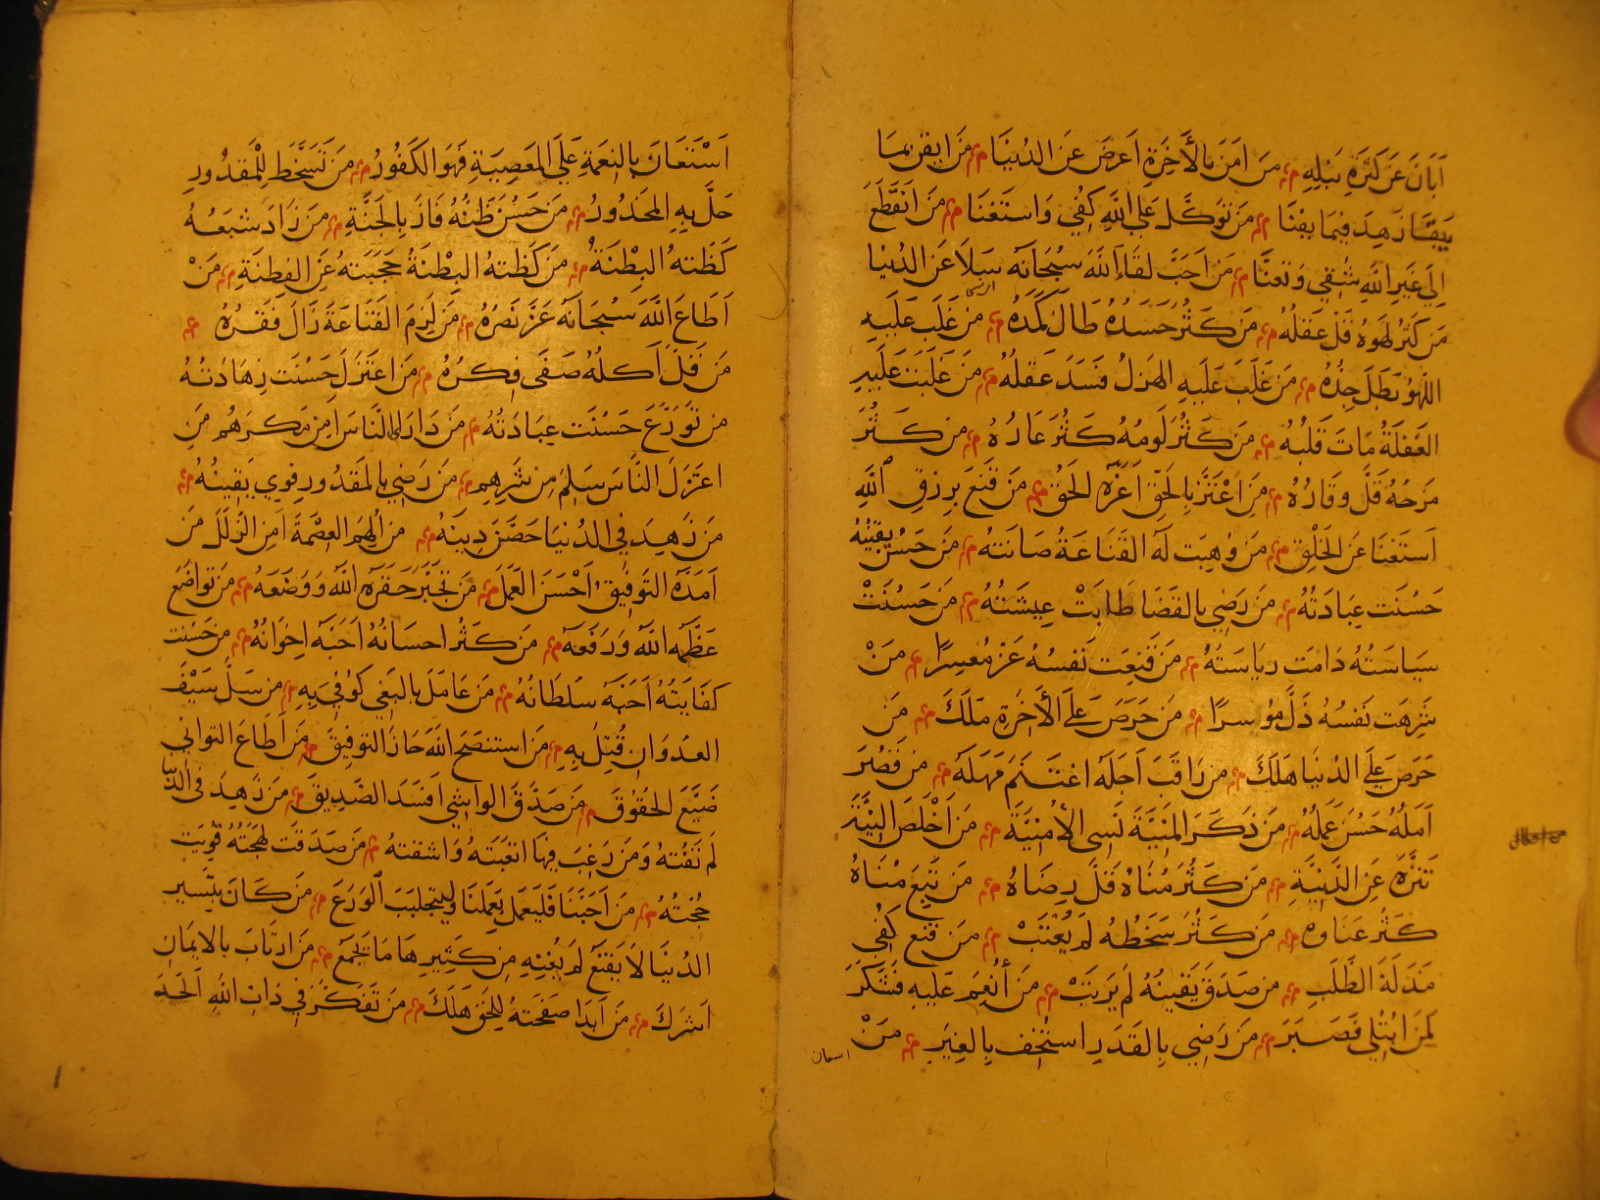 اَبَانَ عَن كَثرَةِ نبلِهِ مَن اٰمَنَ بالأخِرَةِ اَعرَضَ عَنِ الدُنيَا مَن ايقن بمَا
يَبقَىا زَهِدَ فيمَا يفنَا مَن تَوَكَّلَ عَلىَ اللّهِ كُفِي وَاستَغنَا مَن انقَطَعَ
اِلي غَيرِ اللّهِ شُقِي وَتعنَّا مَن اَحَبَّ لقَاءَ اللّهَ سُبحَانَه سَلاَ عَن الدُنيَا
مَن كَثرُ لهوهُ قَلَّ عَقلهُ مَن كَثُرَ حَسَدُهُ طَالَ كمَدُه مَن غَلَب عَلَيهِ
اللَّهوُ بَطَلَ جِدُّهُ مَن غلَبَ عَلَيهِ الهَزلُ فسَدَ عَقلهُ مَن غلَبَت عَلَيهِ
الغَفلَةُ مَاتَ قلبُهُ مَن كثُرَ لَومُهُ كثُرَ عَارُهُ مَن كثُرَ
مَزحُهُ قَلَّ وقَارُهُ مَنِ اعْتَزَّ بِالحَقِّ اَعَزَّهُ الحَقُّ مَن قنَعَ بِرِزقِ اللهِ
اَستَغنَا عَنِ الخَلقِ مَن وُهِبَت لَهُ القنَاعَةُ صَانَتهُ مَن حَسُنَ يقينُهُ
حَسُنَت عِبَادَتُهُ مَن رَضِي بالقَضَا طَابَتْ عِيشَتُهُ مَن حَسُنَتْ
سيَاسَتُهُ دَامَت رياسَتُهُ مَن قَنِعَت نَفسُهُ عَزَّ مُعسِرًا مَنْ
شَرِهَت نَفسُهُ ذَلَّ مُوسرًا مَن حَرَصَ عَلىَ الأخِرَةِ مَلكَ مَن
حَرَصَ عَلىَ الدُنيَا هَلكَ من رَاقبَ اَجَلهُ اغتَنَمَ مَهَلَهُ من قصُرَ
اَمَلُهُ حَسُنَ عَمَلُهُ مَن ذكَرَ المَنِيَّةَ نَسِي الأُمنِيَّةَ مَن اَخلَصَ النِيَّةَ
تَنَزَّهَ عَنِ الدَّنِيَّةِ مَن كثُرَ مُنَاهُ قَلَّ رِضَاهُ مَن تَبِعَ مُنَاهُ
كثُرَ عَنَاوهُ مَن كثُرَ سَخَطُهُ لَم يُعْتَبْ مَن قنَعَ كُفِي
مَذَلةَ الطَّلَبِ من صَدَقَ يَقينُهُ لم يَرتَبْ مَن أُنعِمَ عَلَيهِ فشَكَرَ
كَمَن ابتُلي فَصَبَرَ مَن رَضِي بِالقَدَرِ استُخِف بِالغِيَرِ مَنْ
استعان
اَسْتَعَانَ بالنِعمَةِ عَلىَ المَعصِيَةِ فهُوَ الكَفُورُ مَن تَسَخَّطَ لِلْمَقدُورِ
حَلَّ بِهِ المَحذُورُ مَن حَسُنَ ظَنُّهُ فازَ بِالجَنَّةِ مَن زَادَ شبَعُهُ
كَظَتهُ البِطْنَةُ مَن كَظَتهُ البِطْنَةُ حَجَبَتهُ عَنِ الفِطنَةِ مَنْ
اَطَاعَ اللّهَ سُبحَانَهُ عَزَّ نَصرُهُ مَن لَزِمَ القنَاعَةَ زَالَ فَقرُهُ
مَن قَلَّ اَكلُهُ صَفَى فِكرُهُ مَن اعتَزَلَ حَسُنَت زهَادتُهُ
من تَوَرَّعَ حَسُنَت عِبَادَتُهُ مَن دَارَا النَّاسَ امِنَ مَكرَهُم مَنِ
اعتَزلَ النَّاسَ سَلِمَ مِن شَرِهِم مَن رَضِي بالمَقدُورِ قوِي يَقينُهُ
مَن زَهِدَ في الدُنيَا حَصَّنَ دِينَهُ مَن اُلهِمَ العِصْمَةَ اَمِنَ الزَلَلَ مَن
اَمَدَّهُ التَوفِيقُ اَحْسَنَ العَمَلَ مَن تجَبَّرَ حَقرَهُ اللّهُ وَوَضَعَهُ مَن تواضَعَ
عَظَّمَهُ اللّهُ وَرَفَعَهُ مَن كثُرَ احسَانُهُ اَحَبَّهُ اخوَانُهُ من حَسُنت
كفَايَتُهُ اَحَبَّهُ سُلطَانُهُ مَن عَامَلَ بالبَغي كوُفِيَ بِهِ مَن سَلَّ سَيْفَ
العدُوَانِ قُتِلَ بِهِ مَن استَنصَحَ اللّهَ حَازَ التَوفيقَ مَن اَطَاعَ التواني
ضَيَّعَ الحُقوُقَ مَن صَدَّقَ الوَاشِي افسَدَ الصَّدِيقَ مَن زَهِدَ في الدنيا
لم تفُتهُ وَمَن رَغِبَ فيهَا اتعَبَتهُ وَاشقتهُ مَن صَدَقت لهجَتُهُ قوِيَت
حُجّتُهُ مَن اَحَبَّنَا فليَعمَل بِعَمَلِنَا وليَتجَلبَبَ الوَرَعَ مَن كانَ بيَسيرِ
الدُنيَا لاَ يَقنَعُ لم يُغنِهِ مِن كَثِيرِهَا مَا يَجمَعُ مَن ارتَابَ بالايمَانِ
اَشرَكَ مَن اَبدَا صَفحَتهُ لِلحَقِ هَلَكَ مَن تَفَكَّرَ في ذَاتِ اللهِ اَلحَدَ